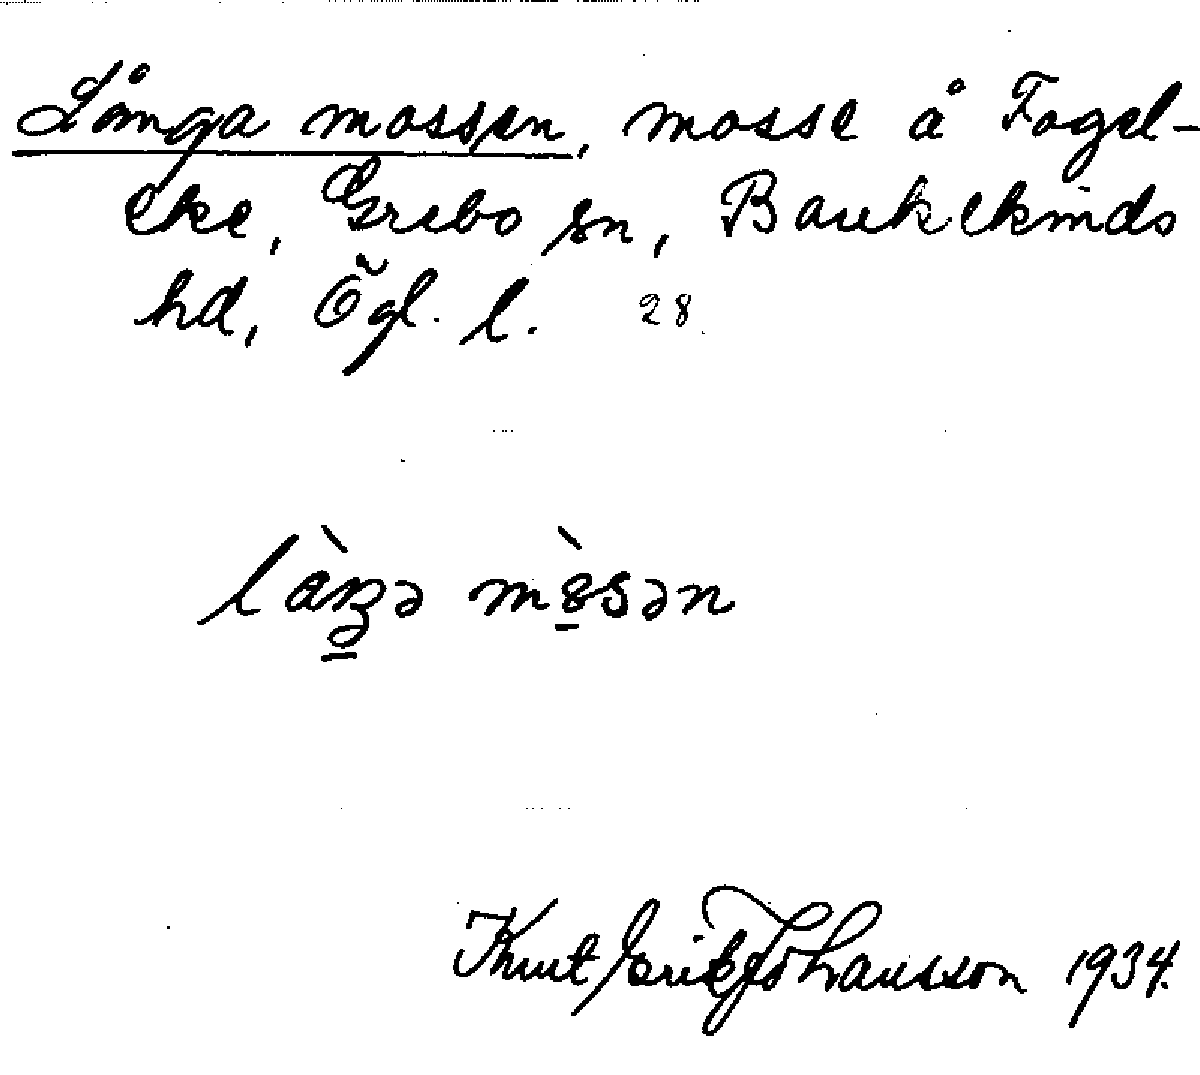 Långa mossen, mosse å Fogel-
eke, Grebo sn, Bankekinds
hd, Ögl. l. 28
Knut Erik Johansson 1934.